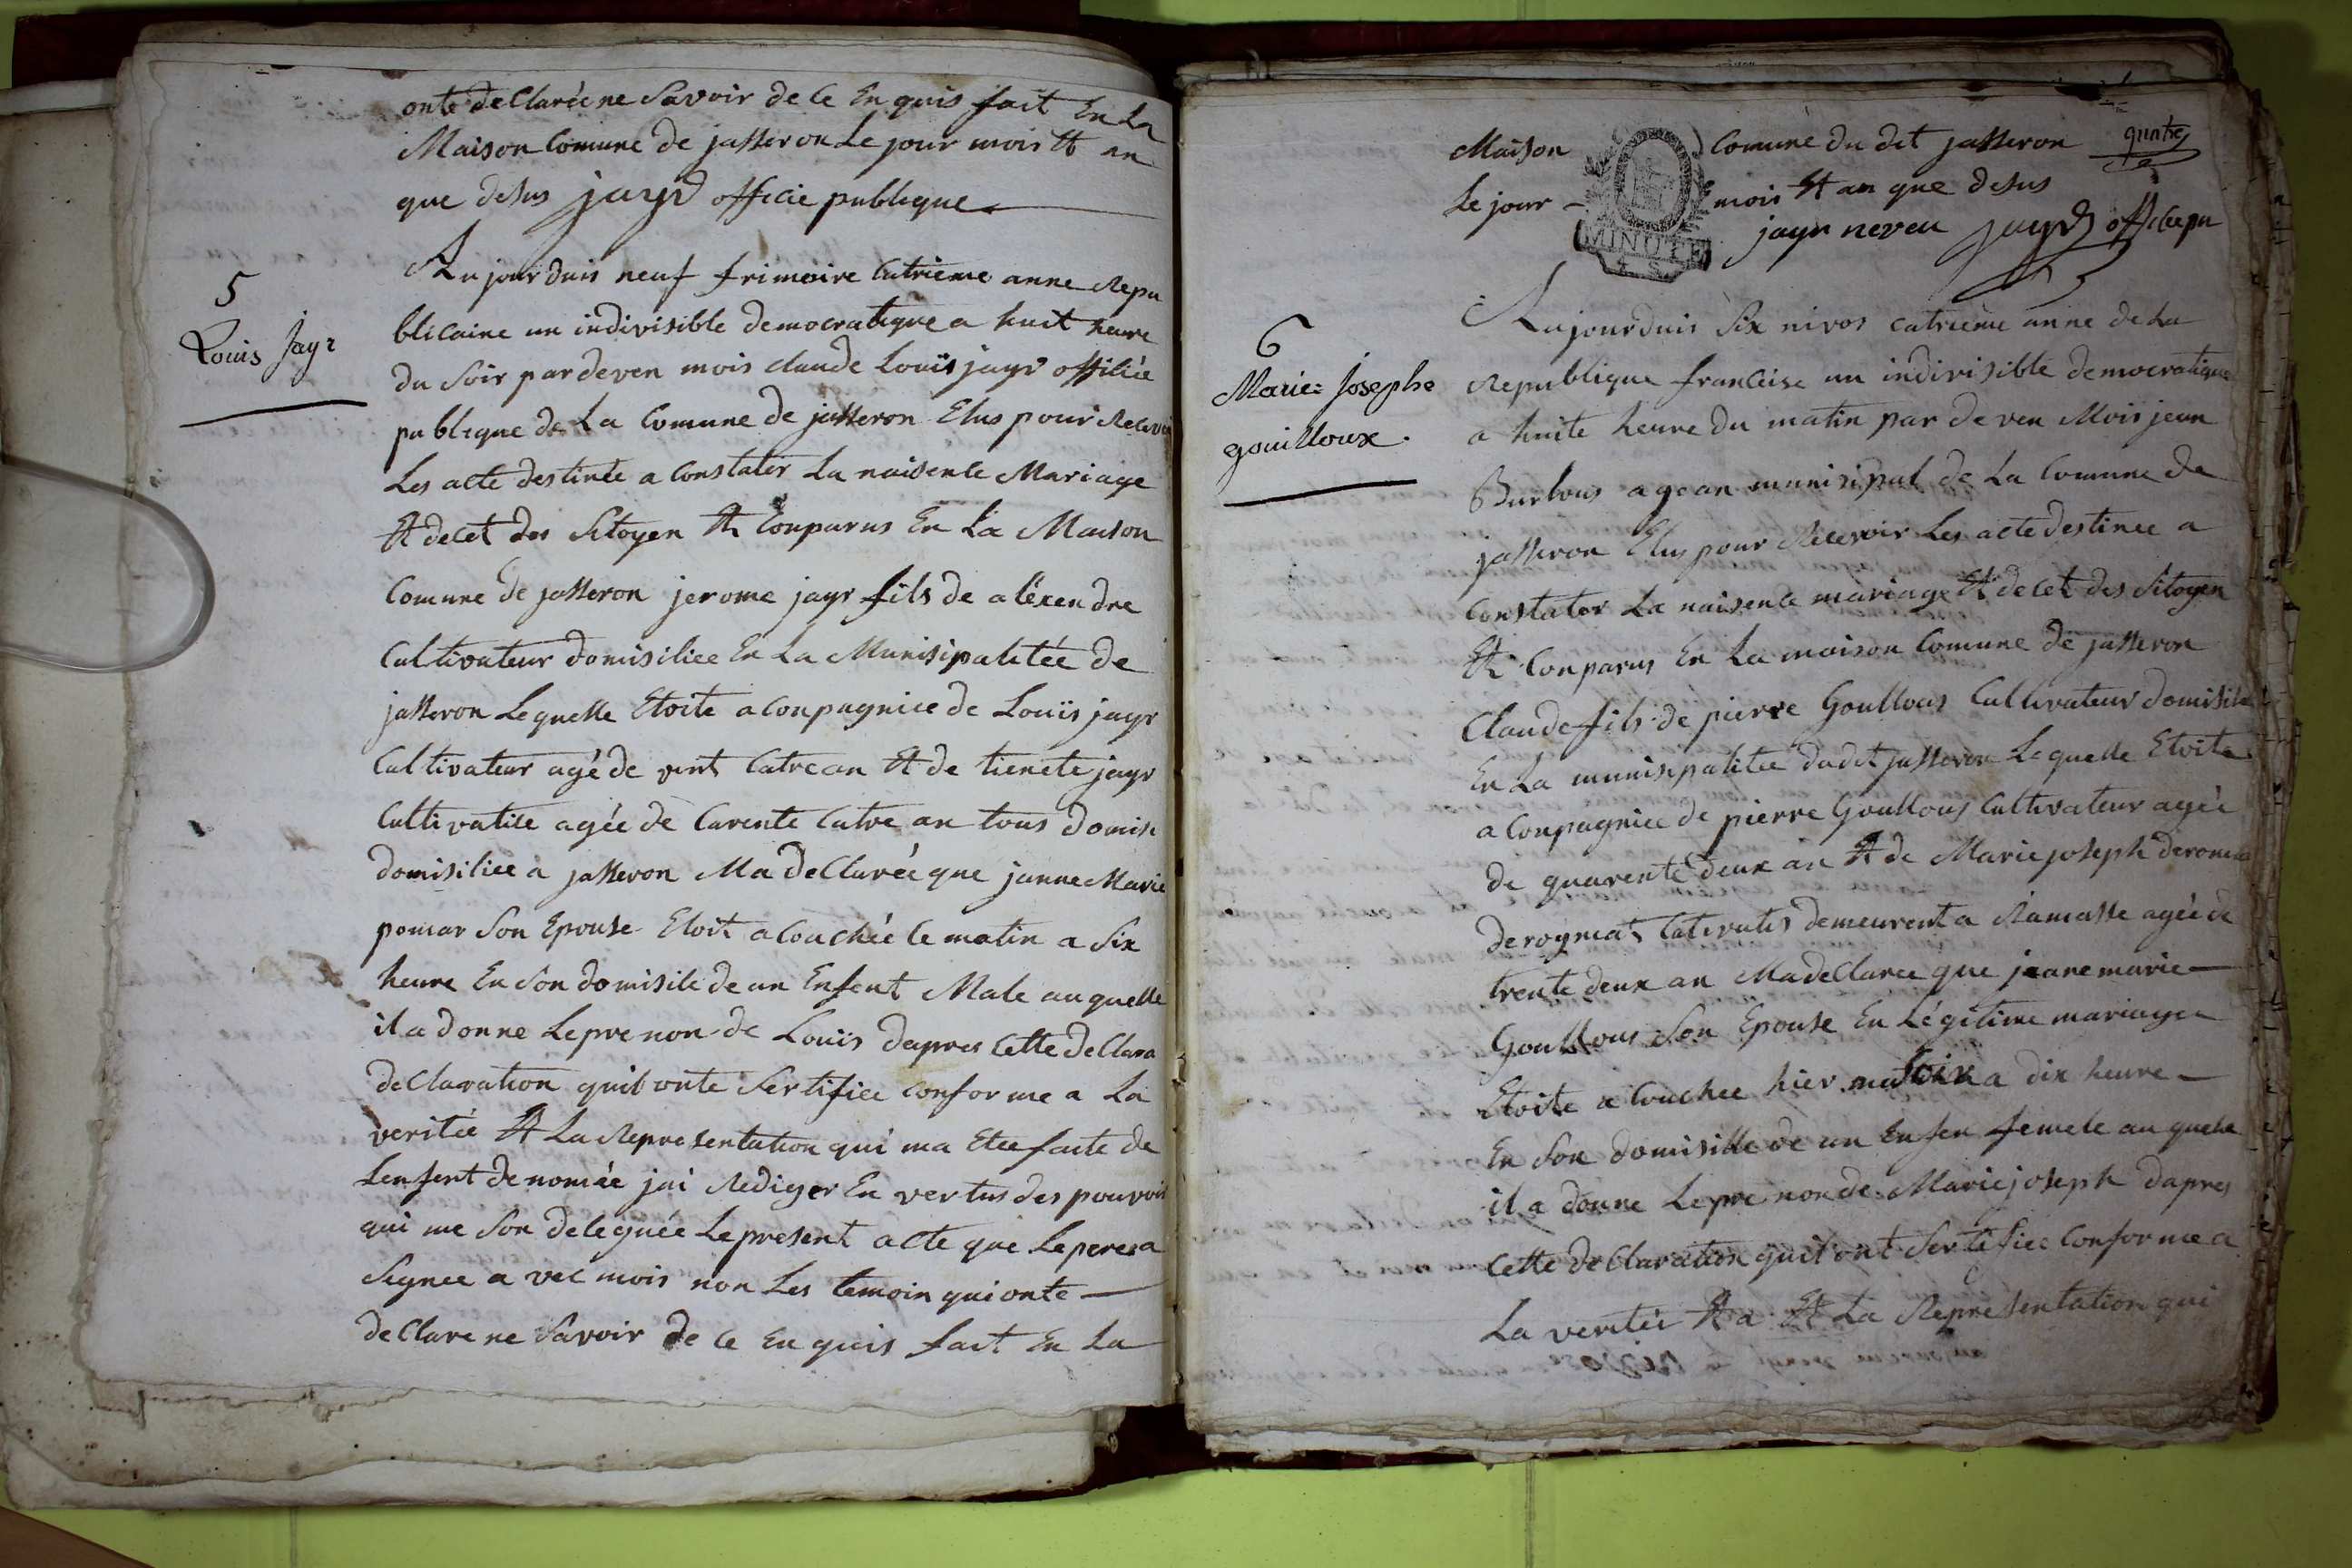 onte de Clarée ne Savoir de Ce En quis fait En La
Maison Comune de jasseron Le jour mois Et an
que desus jayr officie publique
5
Louis Jayr
Aujourduis neuf frimaire Catrieme anne Repu
blicaine un indivisible democratique a huit heure
du Soir par deven mois claude Louïs jayr offiliée
publique de La Comune de jasseron Elus pour Recevoi
Les acte destinée a Constater La naisence Mariage
Et decet des Sitoyen Et Conparus En La Maison
Comune de jasseron jerome jayr fils de aléxendre
Cultivateur domisiliee En La Munisipalitée de
jasseron Lequelle Etoite aConpagniee de Louïs jayr
Cultivateur agé de vint Catre an Et de tienete jayr
Cultivatise agée de Carente Catre an tous domisi
domisiliee a jasseron Ma deClarée que janne Marie
pomar Son Epouse Etoit aCouchée Ce matin a Six
heure En Son domisile de un Enfent Male au quelle
il a donne Le prenon de Louïs dapres Cette deClara
deClaration quil onte Sertifiee Conforme a La
veritée Et La Representation qui ma Etee faite de
Lenfent denomée jai Rediger En vertus des pouvoir
qui me Son deleguée Le present acte que Le peres a
Signee a vec mois non Les temoin qui onte
deClare ne Savoir de Ce En quis fait En La
Maison Comune du dit jasseron
Le jour mois Et an que desus
jayr neveu jayr officiepu
MINUTE
6
Marie=Josephe
gouilloux.
Aujourduis Six nivos Catrieme anne de La
Republique franCaise un indivisible democratique
a huite heure du matin par de ven Mois jean
Burlous agean munisipal de La Comune de
jasseron Elus pour Recevoir Les acte destinee a
Constater La naisence mariage Et decet des Sitoyen
Et Conparus En La maison Comune de jasseron
Claude fils de pierre Goullous Cultivateur domisilie
En La munisipalitée dudit jasseron Lequelle Etoite
a Conpagniee de pierre Goullous Cultivateur agée
de quarente deux an Et de Marie joseph
deroymas demeurent a Ramasse agée de
trente deux an Ma deClaree que jeane marie
Goullous Son Epouse En Légitime mariage
Etoite a Couchee hier a dix heure
En Son domisille de un Enfen femele au quele
il a donne Le pre non de Marie joseph dapres
Cette deClaration quil ont Sertifiee Conforme a
La veritée Et a Et La Representation qui